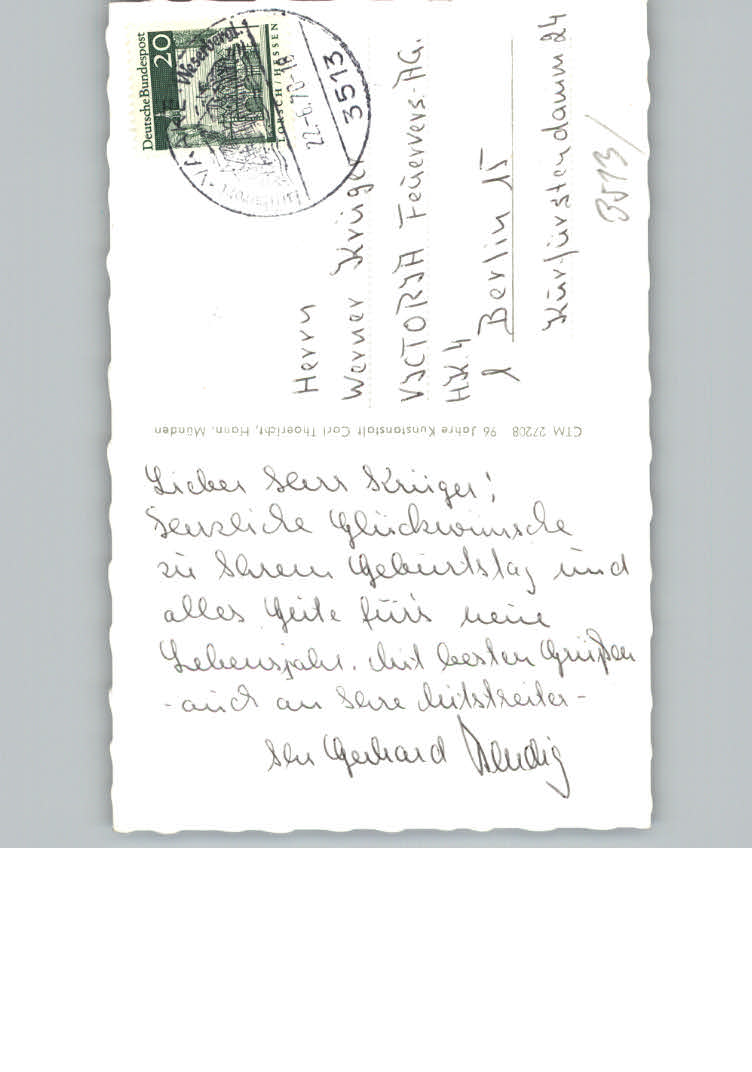 Deutsche Bundespost
20
LORSCH/HESSEN
Weserbergl
22.-6.70-18
3513
Herrn
Werner Krüger
VICTORIA Feuervers.-AG.
HK 4
1 Berlin 15
Kurfürstendamm 24
3513/
CTM 27208 96 Jahre Kunstanstalt Carl Thoericht, Hann. Münden
Lieber Herr Krüger!
Herzliche Glückwünsche
zu Ihrem Geburtstag und
alles Gute für's neue
Lebensjahr. Mit besten Grüßen
- auch an Ihre Mitstreiter -
Ihr Gerhard